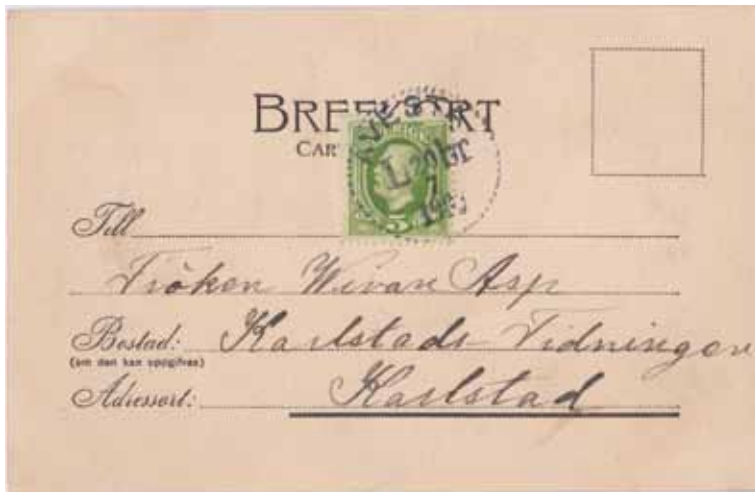 BREFKORT
CAR
AVESTA
L 20 LBR
5
Till
Fröken Wivan Asp
Bostad: Karlstads Tidningen
(om den kan uppgifvas)
Adressort: Karlstad